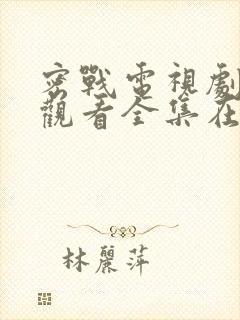 密戰電視劇
觀看全集在
林麗萍